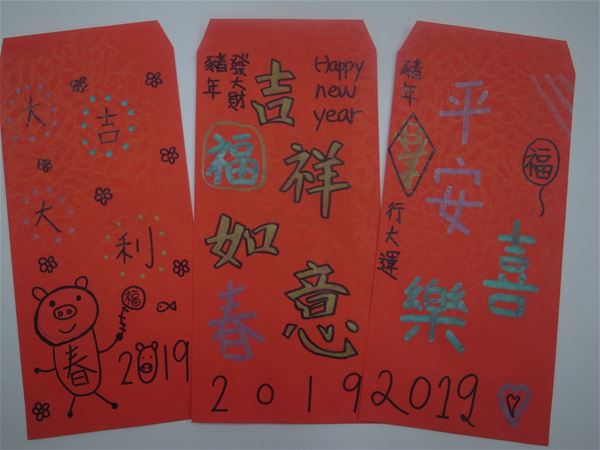 大吉
大利
福
春
2019
豬年
發大財
Happy
new
year
吉祥
如意
福
春
2019
豬年
行大運
平安
喜樂
福
2019